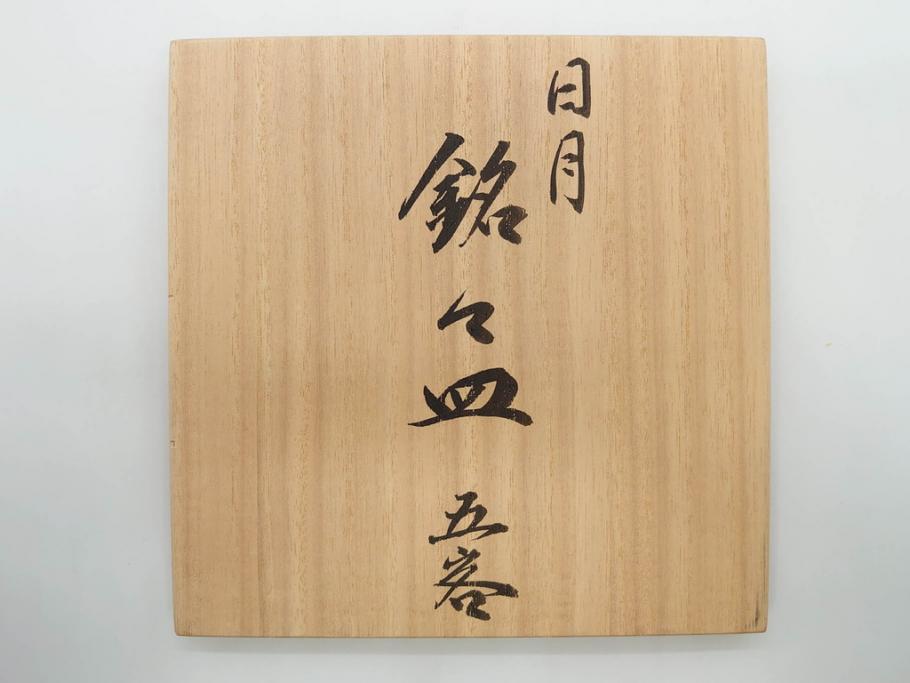 日月
銘々皿 五客